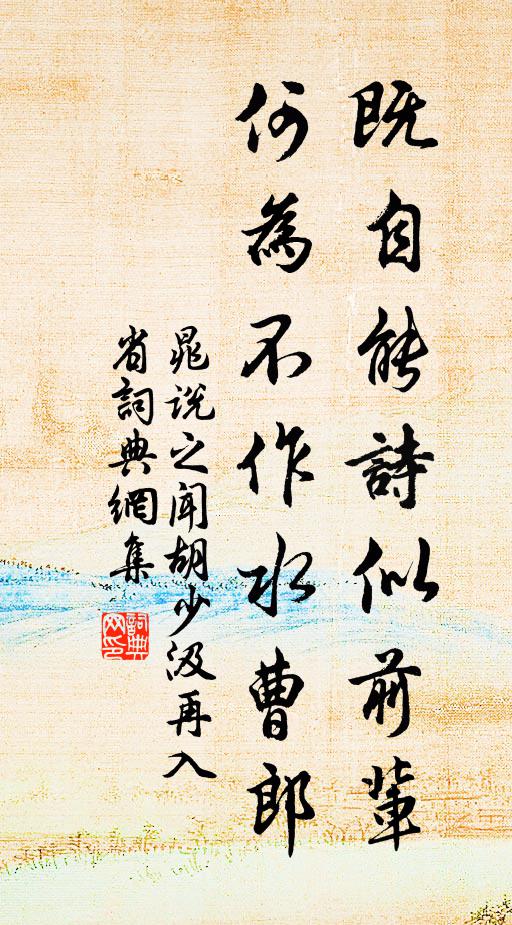 既自能詩似前輩
何為不作水曹郎
晁说之闻胡少汲再入
省詞典網集
詞典
网印